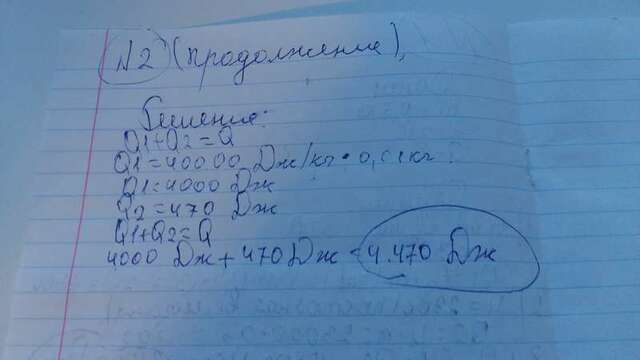 N2 (продолжение),
Решение:
Q1+Q2=Q
Q1=40000 Дж/кг · 0,1 кг
Q1=4000 Дж
Q2=470 Дж
Q1+Q2=Q
4000 Дж + 470 Дж = 4.470 Дж